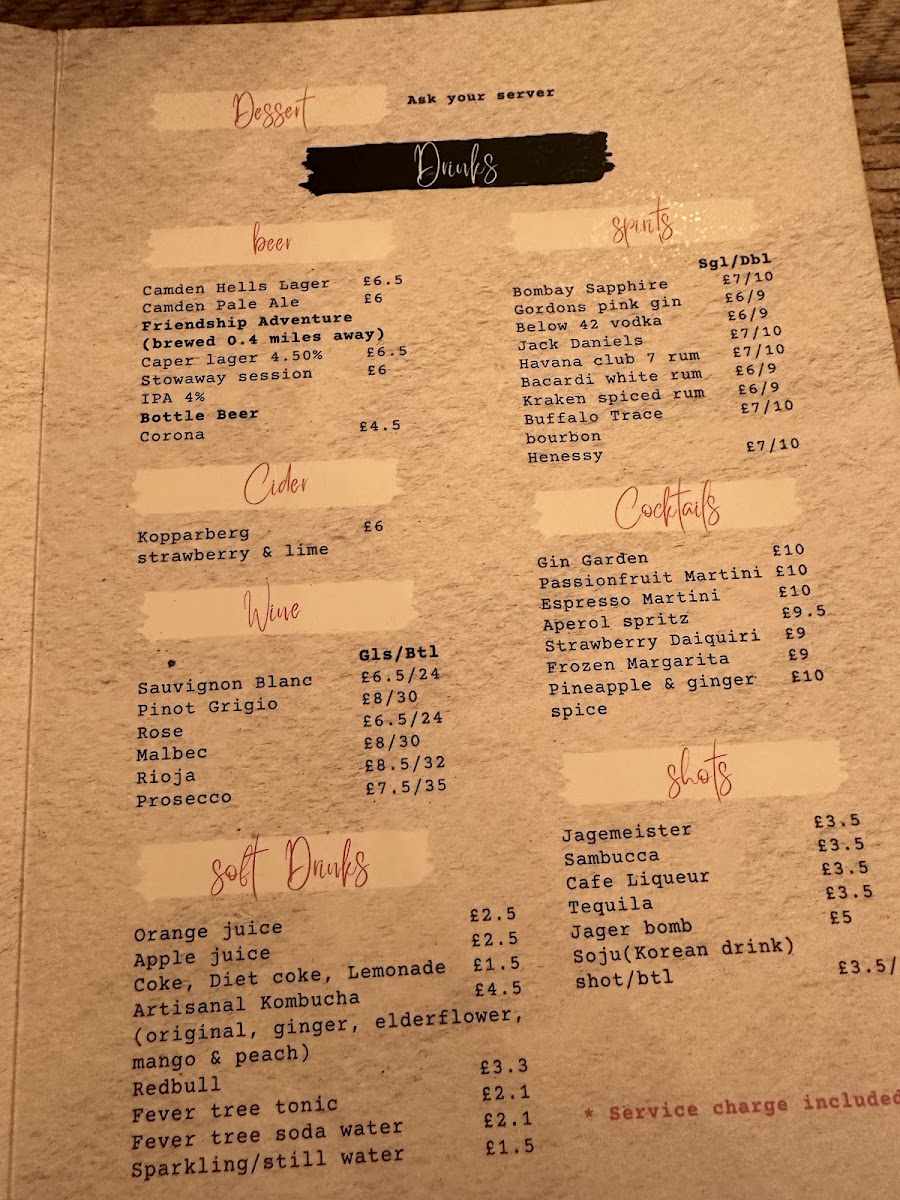 Dessert Ask your server
Drinks
beer
Camden Hells Lager £6.5
Camden Pale Ale £6
Friendship Adventure
(brewed 0.4 miles away)
Caper lager 4.50% £6.5
Stowaway session £6
IPA 4%
Bottle Beer
Corona £4.5
Cider
Kopparberg £6
strawberry & lime
Wine
Gls/Btl
Sauvignon Blanc £6.5/24
Pinot Grigio £8/30
Rose £6.5/24
Malbec £8/30
Rioja £8.5/32
Prosecco £7.5/35
soft Drinks
Orange juice £2.5
Apple juice £2.5
Coke, Diet coke, Lemonade £1.5
Artisanal Kombucha £4.5
(original, ginger, elderflower,
mango & peach)
Redbull £3.3
Fever tree tonic £2.1
Fever tree soda water £2.1
Sparkling/still water £1.5
spirits
Sgl/Dbl
Bombay Sapphire £7/10
Gordons pink gin £6/9
Below 42 vodka £6/9
Jack Daniels £7/10
Havana club 7 rum £7/10
Bacardi white rum £6/9
Kraken spiced rum £6/9
Buffalo Trace £7/10
bourbon
Henessy £7/10
Cocktails
Gin Garden £10
Passionfruit Martini £10
Espresso Martini £10
Aperol spritz £9.5
Strawberry Daiquiri £9
Frozen Margarita £9
Pineapple & ginger £10
spice
shots
Jagemeister £3.5
Sambucca £3.5
Cafe Liqueur £3.5
Tequila £3.5
Jager bomb £5
Soju(Korean drink)
shot/btl £3.5/
* Service charge included